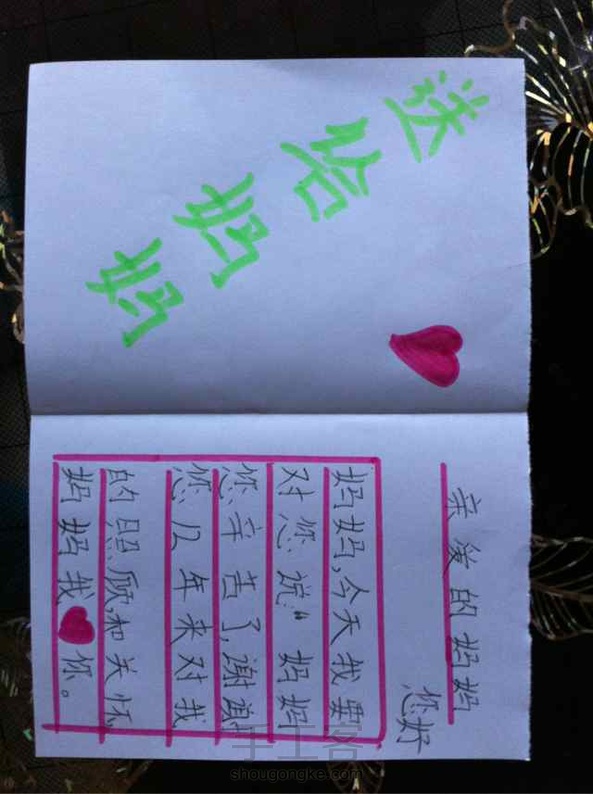 送给妈妈
亲爱的妈妈
您好
妈妈,今天我要
对您说:“妈妈
您辛苦了,谢谢
您几年来对我
的照顾,和关怀
妈妈我❤你。
手工客
shougongke.com